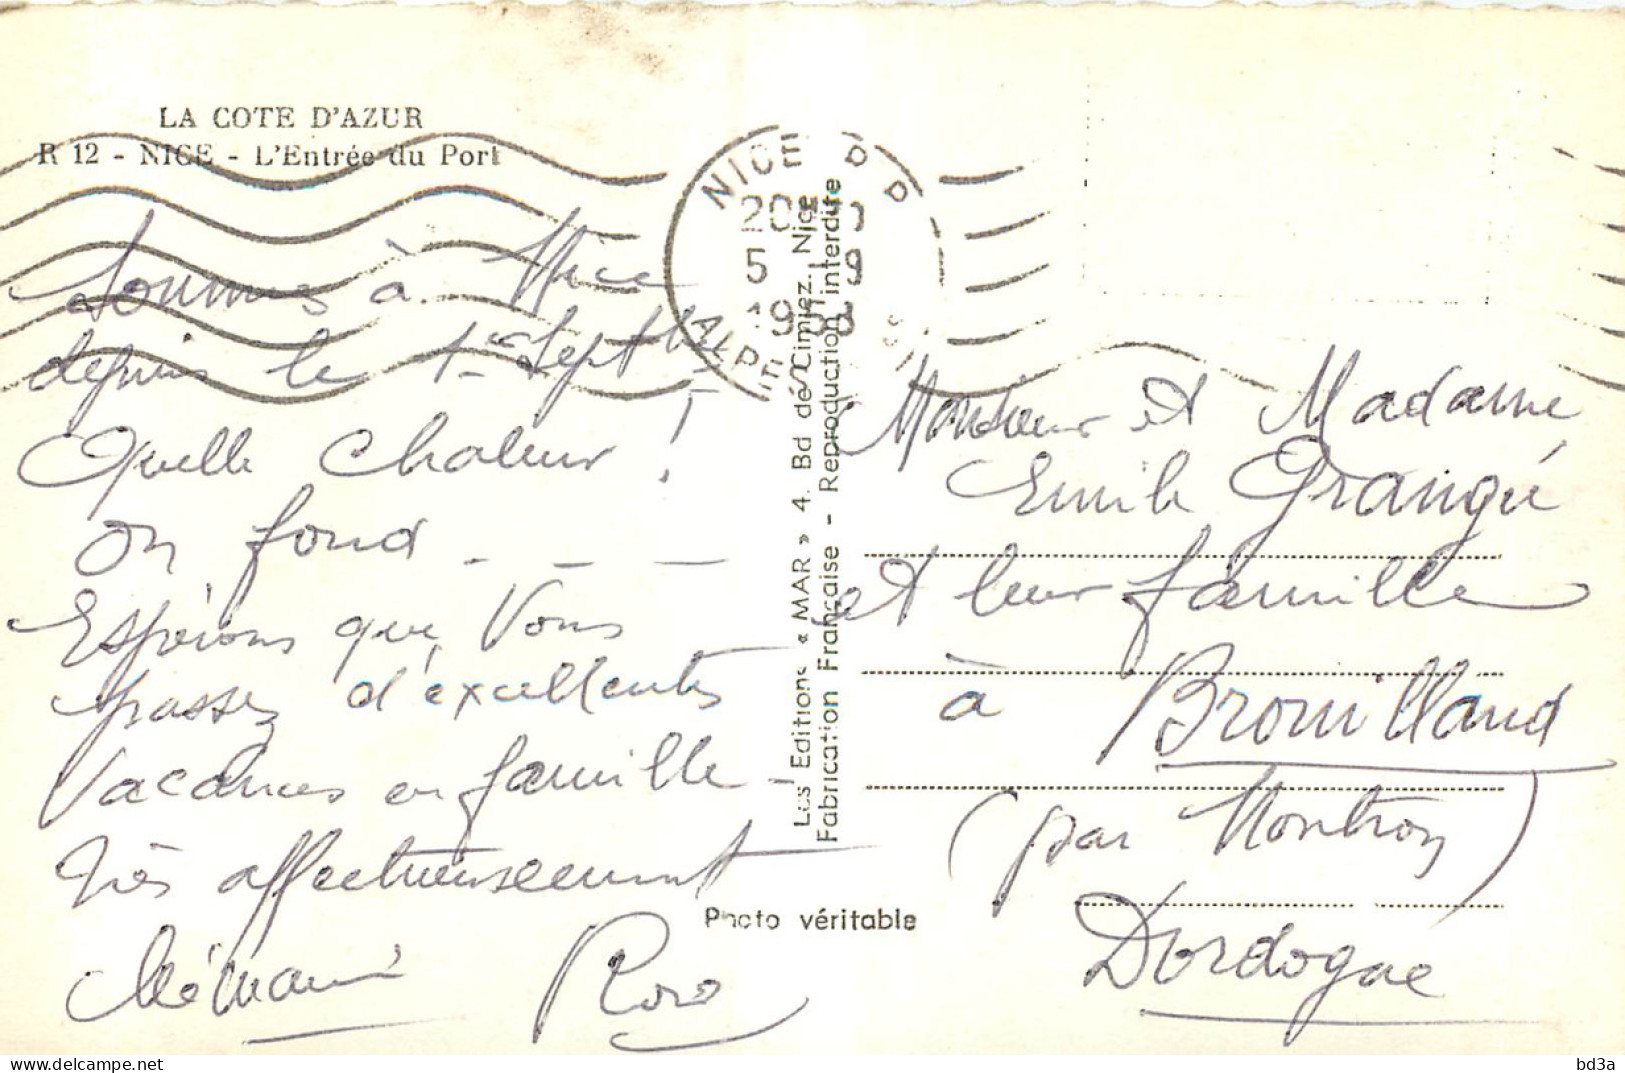 LA COTE D'AZUR
R 12 - NICE - L'Entrée du Port
NICE P P
5 - 9
Sommes à Nice
depuis le 1er Septbre
Quelle chaleur !
on fond - - -
Espérons que Vous
passez d'excellentes
Vacances en famille -
Très affectueusement
Roro
Les Editions « MAR » 4. Bd de Cimiez. Nice
Fabrication Française - Reproduction interdite
Photo véritable
Monsieur et Madame
Emile Grangié
et leur famille
à Brouillaud
(par Nontron)
Dordogne
delcampe.net
bd3a